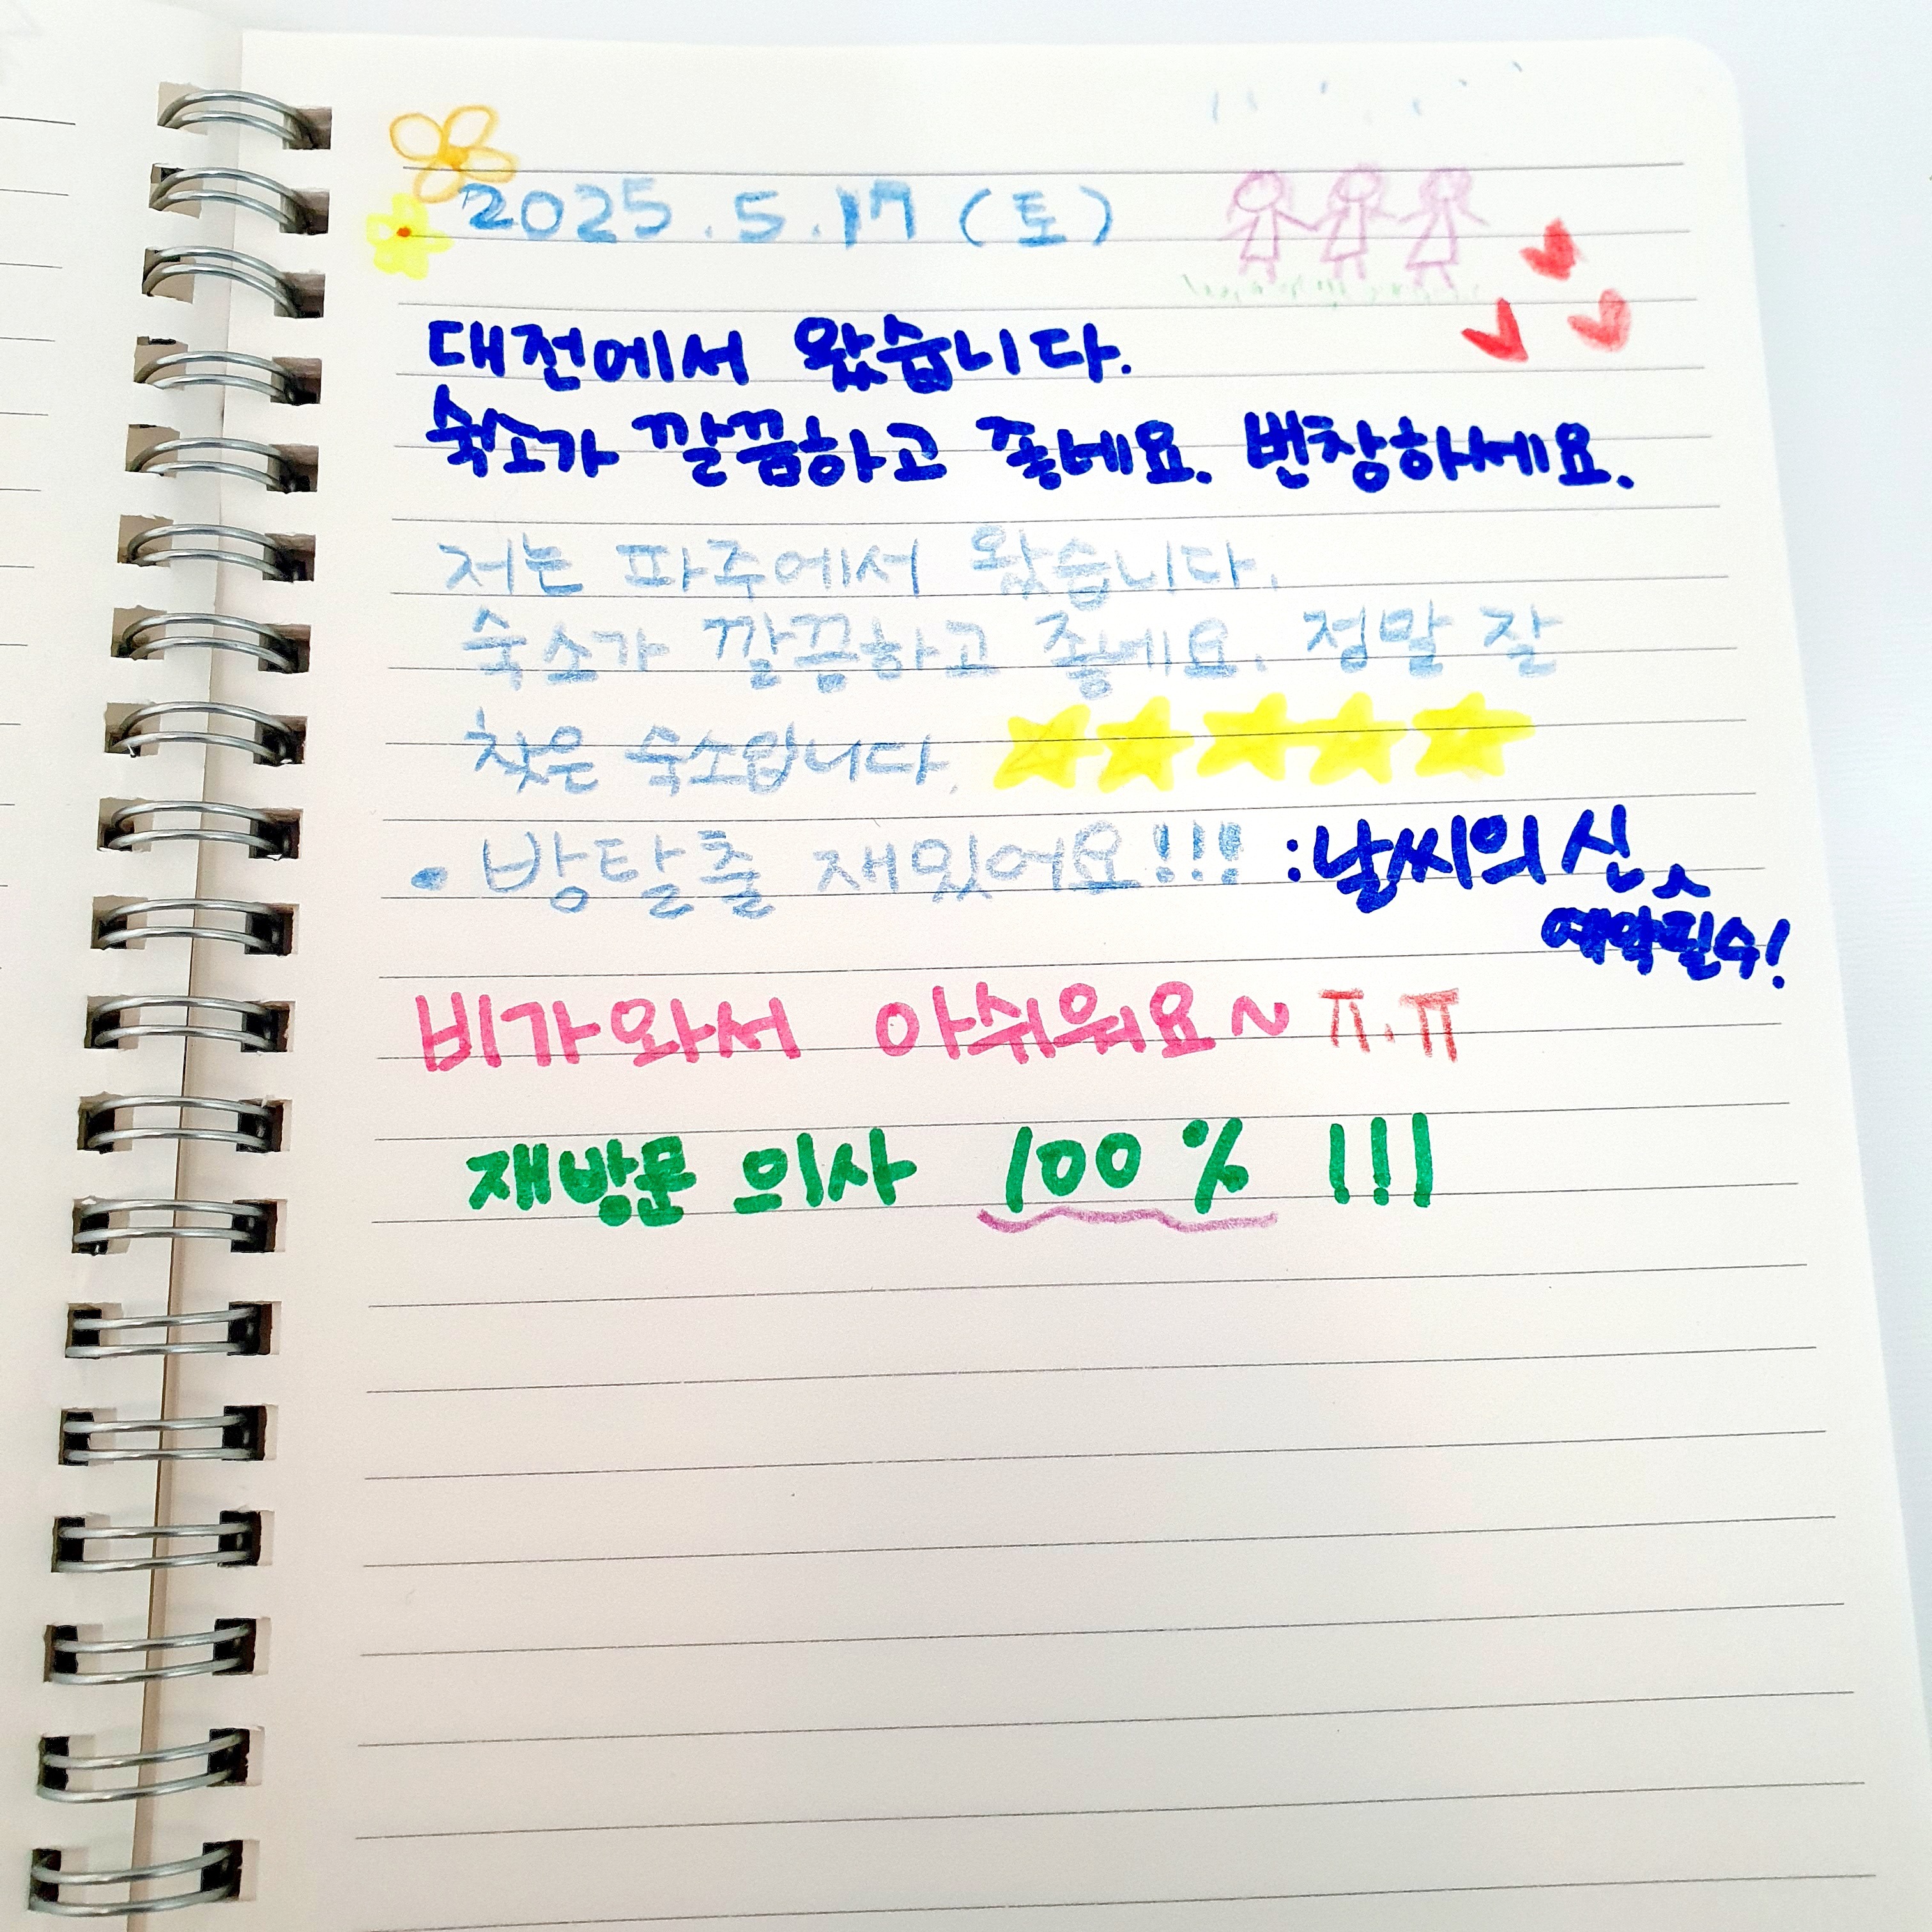 2025.5.17 (토)
대전에서 왔습니다.
숙소가 깔끔하고 좋네요. 번창하세요.
저는 파주에서 왔습니다.
숙소가 깔끔하고 좋네요. 정말 잘
찾은 숙소입니다.
• 방탈출 재밌어요!!! :날씨의 신
예약필수!
비가 와서 아쉬워요~ ㅠ.ㅠ
재방문 의사 100% !!!